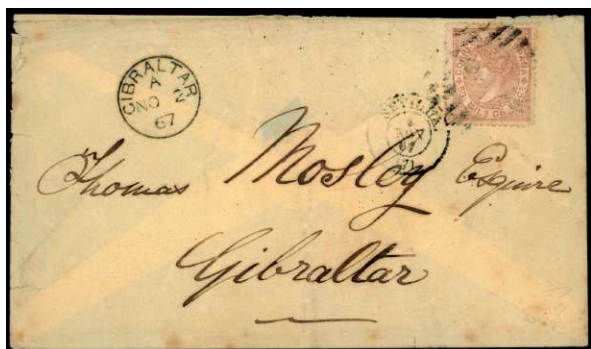 GIBRALTAR
A
NO
67
SEVILLA
Thomas Mosley Esquire
Gibraltar